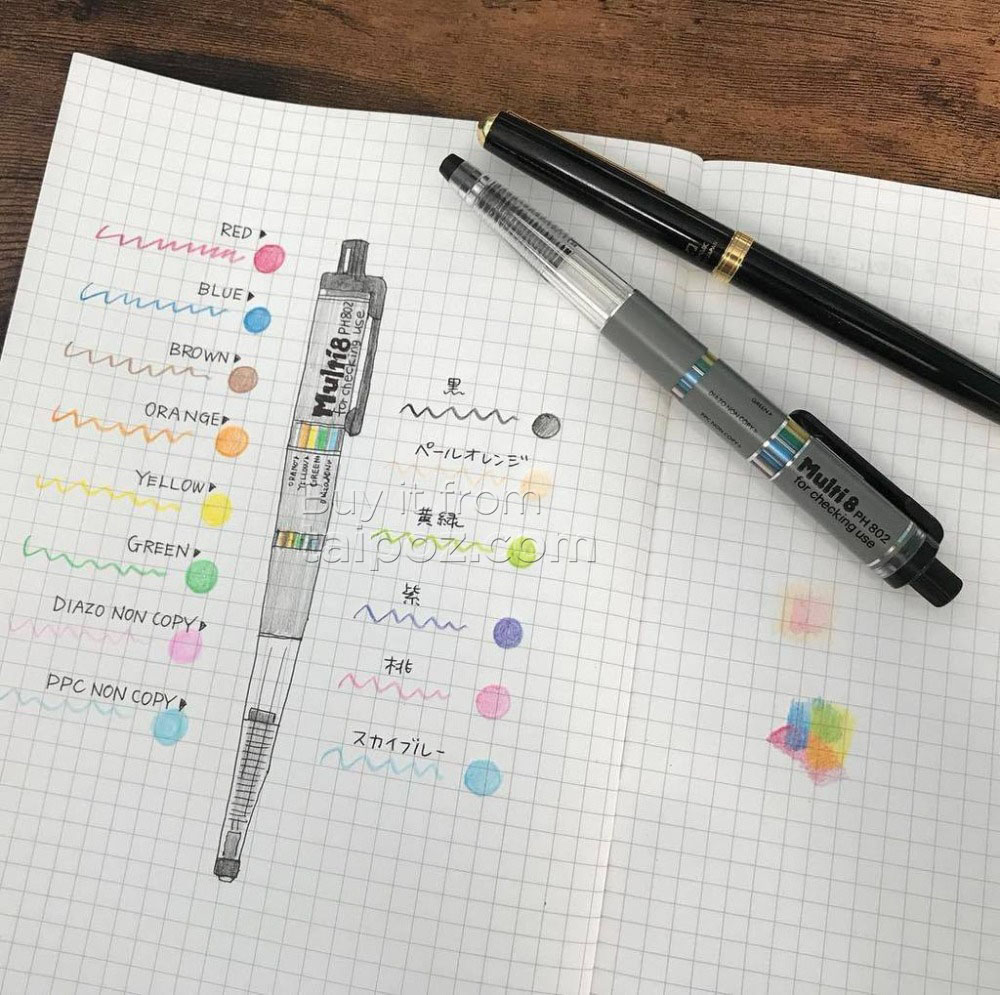 RED
BLUE
BROWN
ORANGE
YELLOW
GREEN
DIAZO NON COPY
PPC NON COPY
Multi8 PH802
for checking use
ORANGE
YELLOW
GREEN
DIAZO NON
黒
ペールオレンジ
黄緑
紫
桃
スカイブルー
Buy it from
taipoz.com
GREEN
DIAZO NON COPY
PPC NON COPY
Multi 8 PH 802
for checking use